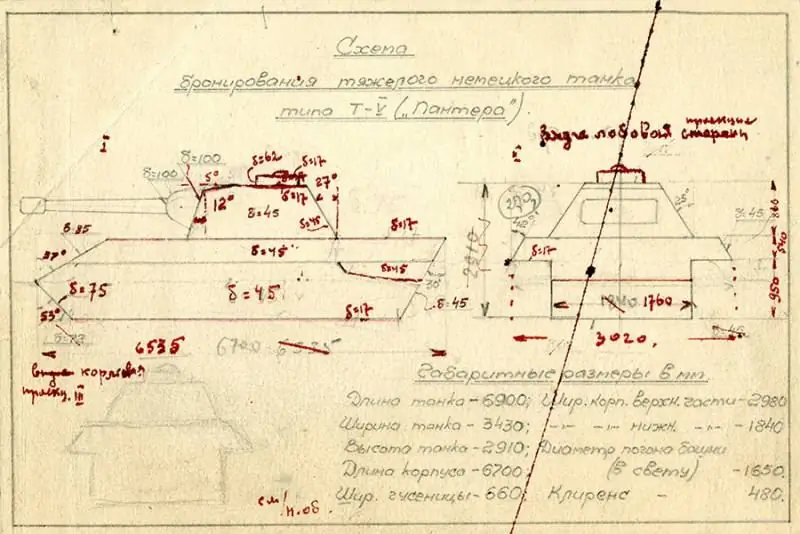 Схема
бронирования тяжелого немецкого танка
типа Т-V („Пантера")
I
Вид с лобовой проекции старени
δ=100
δ=100
5°
δ=62
δ=17
27°
12°
δ=17
δ=45
δ=45
δ=85
δ=17
37°
δ=45
δ=45
δ=75
δ=45
30°
δ=45
53°
δ=17
6535
6700 6535
2910
δ=45
δ=17
540
950
1840 1760
3020.
δ=45
кормовая
III
Габаритные размеры в мм.
Длина танка - 6900; Шир. корп. верхн. части - 2980
Ширина танка - 3430; -„- -„- нижн. -„- - 1840
Высота танка - 2910; Диаметр погона башни
Длина корпуса - 6700; (в свету) - 1650.
Шир. гусеницы - 660; Клиренс - 480.
см/н.об.